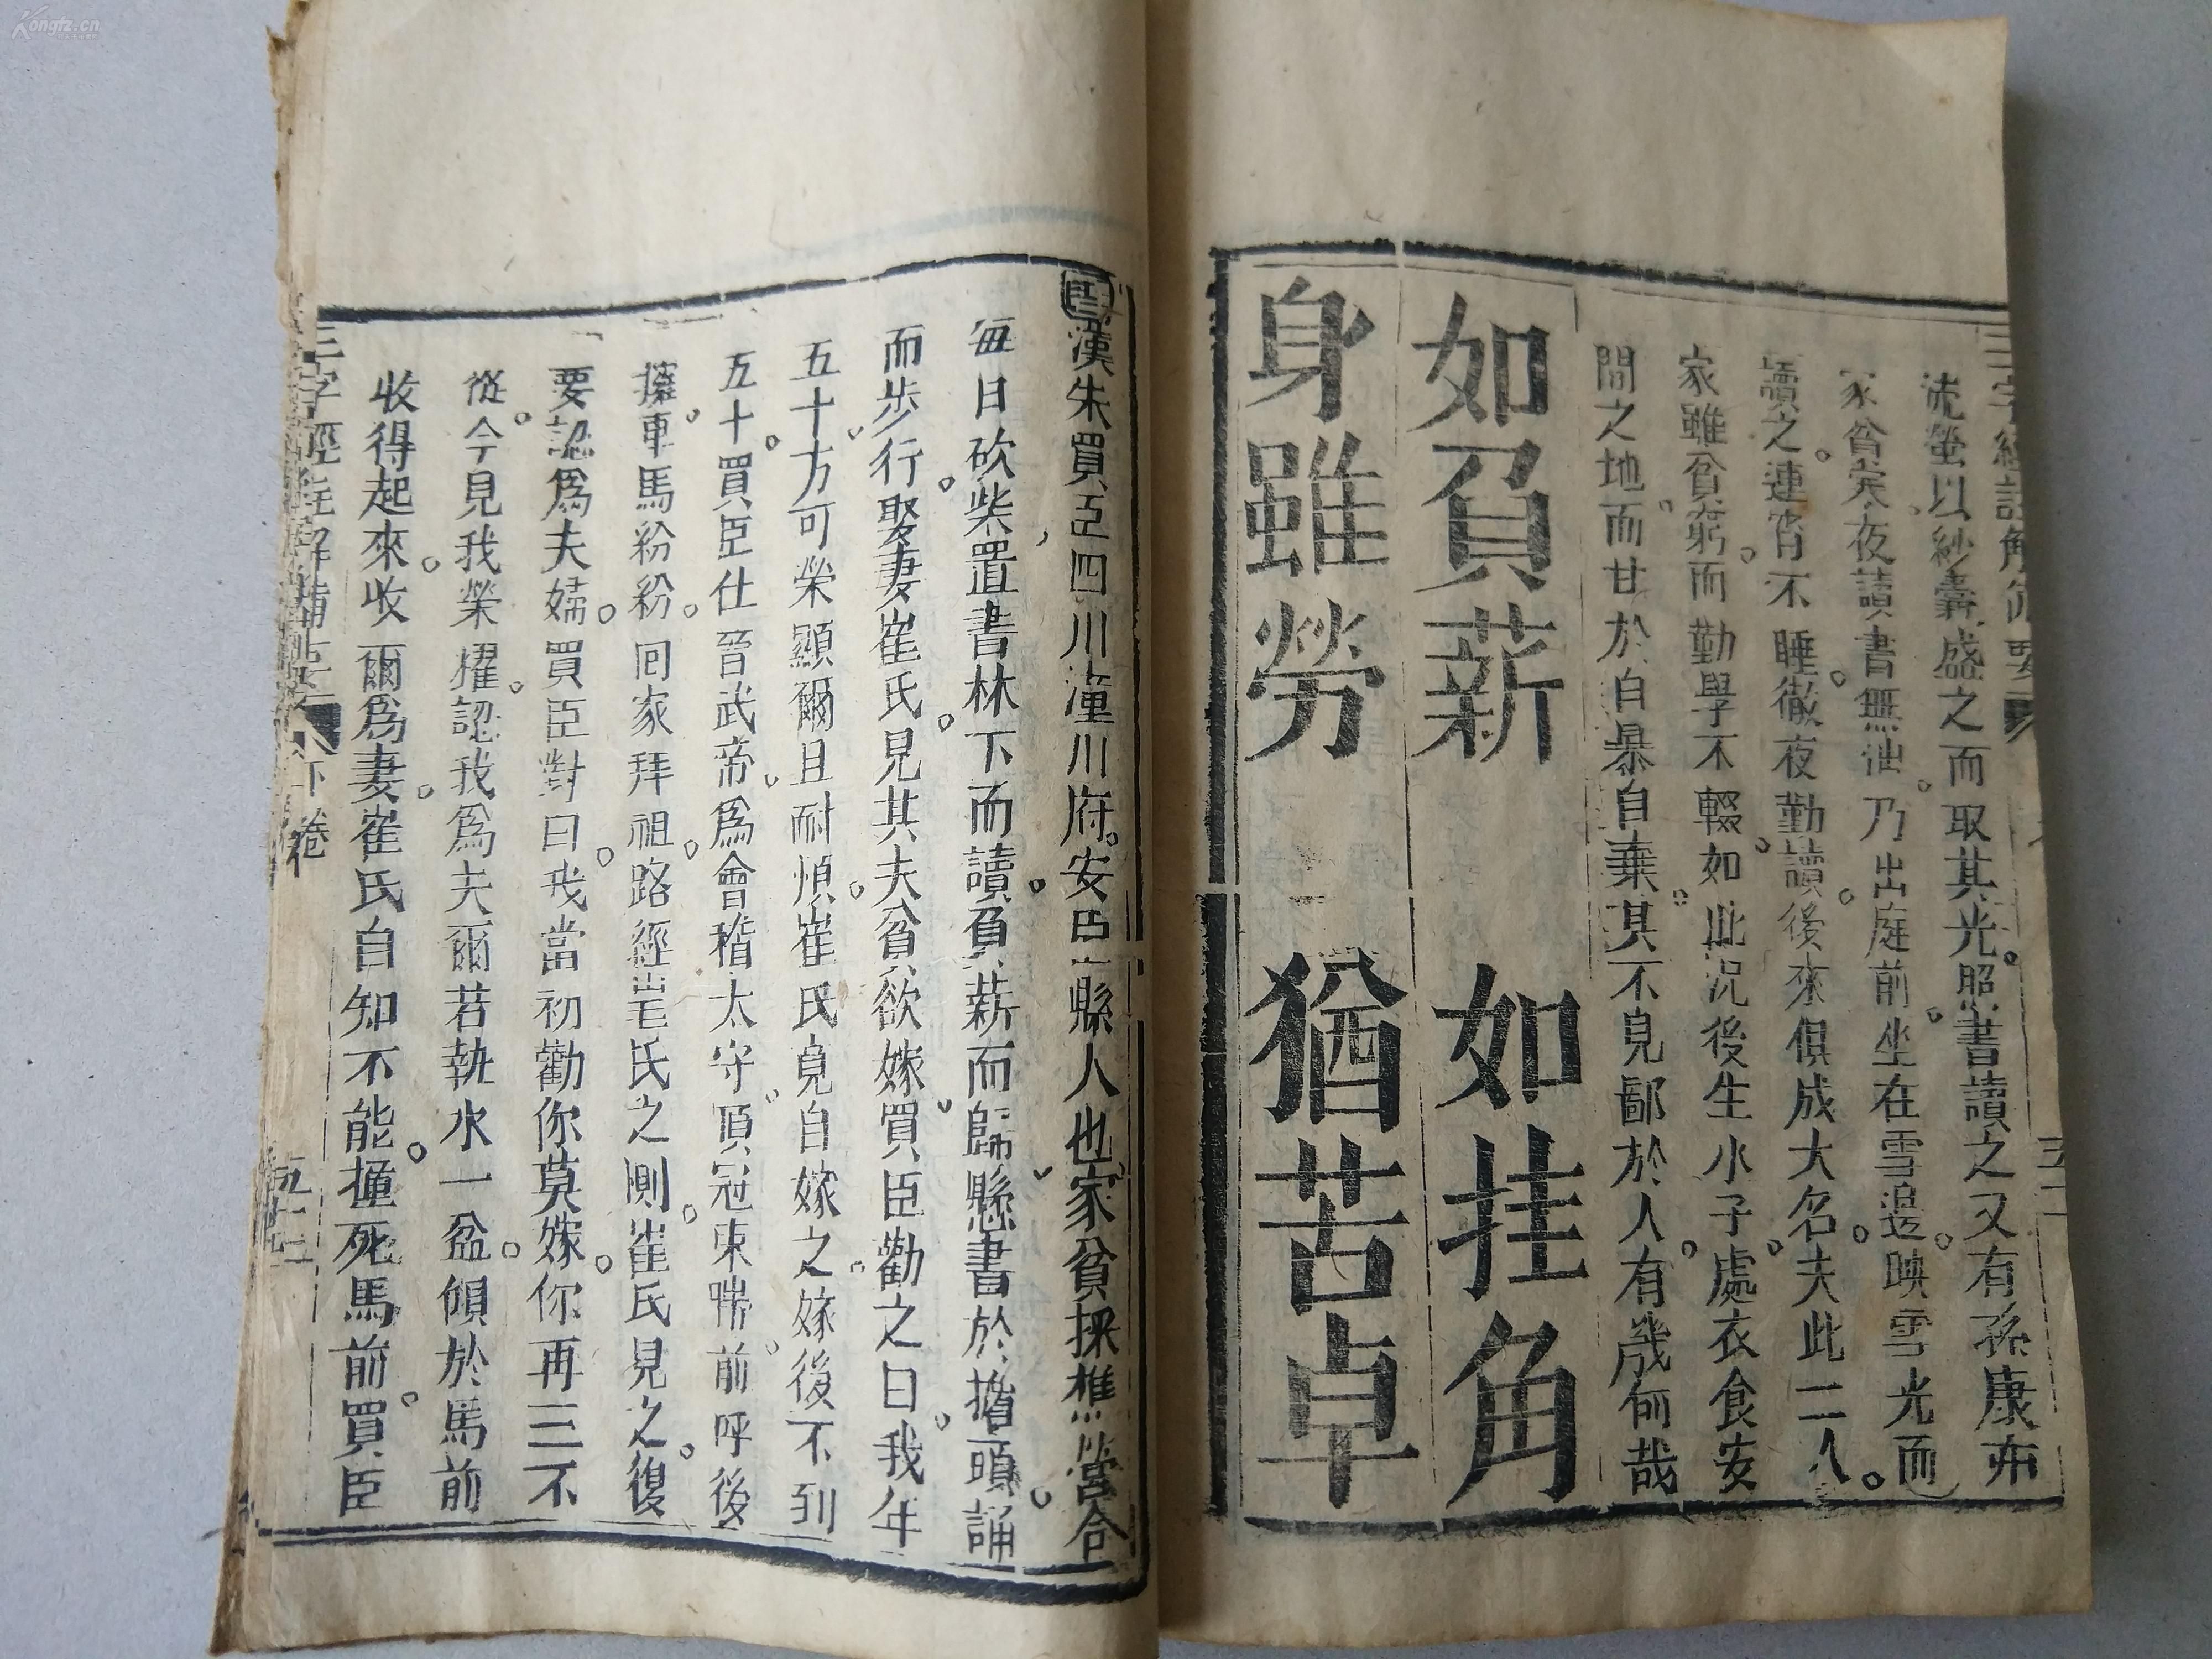 三字經註解備要
流螢以紗囊盛之而取其光照書讀之又有孫康亦
家貧矣夜讀書無油乃出庭前坐在雪邊映雪光而
讀之連宵不睡徹夜勤讀後來俱成大名夫此二人
家雖貧窮而勤學不輟如此況後生小子處衣食安
閒之地而甘於自暴自棄其不見鄙於人有幾何哉
如負薪 如挂角
身雖勞 猶苦卓
漢朱買臣四川潼川府安岳縣人也家貧採樵營食
每日砍柴置書林下而讀負薪而歸懸書於擔頭誦
而步行娶妻崔氏見其夫貧欲嫁買臣勸之曰我年
五十方可榮顯爾且耐煩崔氏竟自嫁之嫁後不到
五十買臣仕晉武帝為會稽太守頂冠束帶前呼後
擁車馬紛紛回家拜祖路經崔氏之側崔氏見之復
要認為夫婦買臣對曰我當初勸你莫嫁你再三不
從今見我榮耀認我為夫爾若執水一盆傾於馬前
收得起來收爾為妻崔氏自知不能撞死馬前買臣
三字經註解備要 下卷 五十二
Kongfz.cn